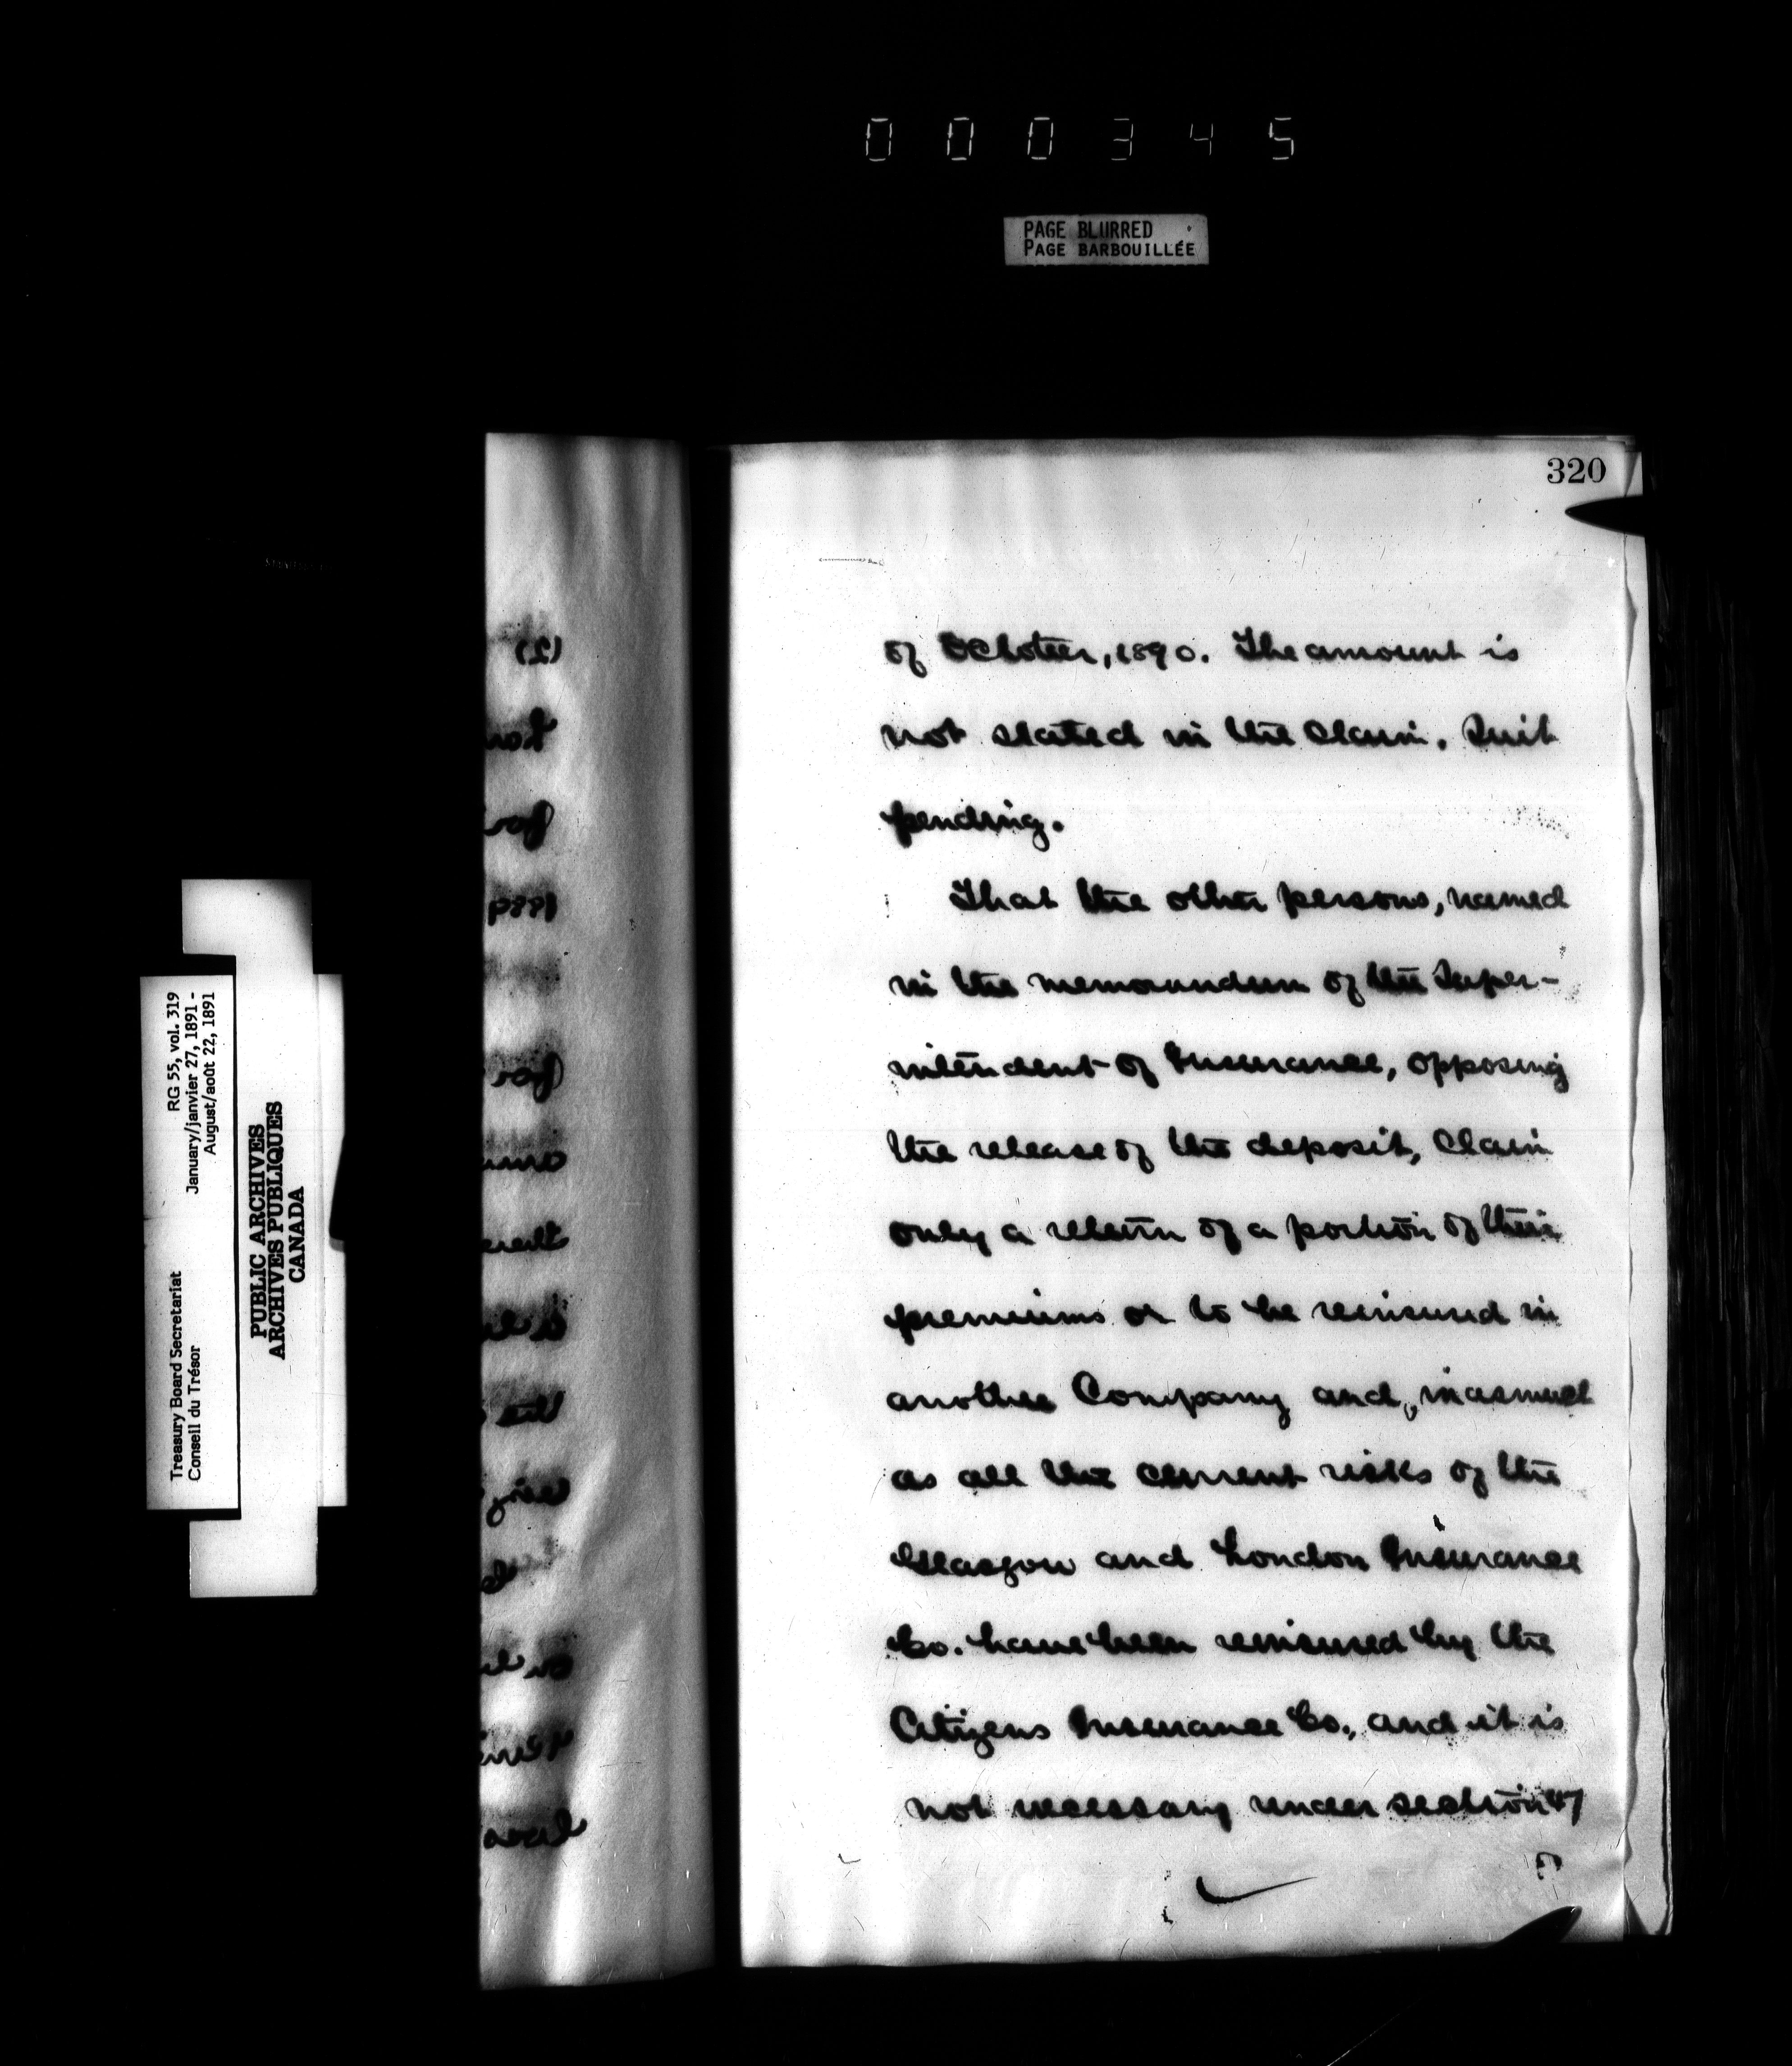 000345
PAGE BLURRED
PAGE BARBOUILLÉE
320
of October, 1890. The amount is
not stated in the claim. Suit
pending.
That the other persons, named
in the memorandum of the Super-
intendent of Insurance, opposing
the release of the deposit, claim
only a return of a portion of their
premiums or to be reinsured in
another Company and, inasmuch
as all the current risks of the
Glasgow and London Insurance
Co. have been reinsured by the
Citizens Insurance Co., and it is
not necessary under section 47
Treasury Board Secretariat RG 55, vol. 319
Conseil du Trésor January/janvier 27, 1891 -
August/août 22, 1891
PUBLIC ARCHIVES
ARCHIVES PUBLIQUES
CANADA
(2)